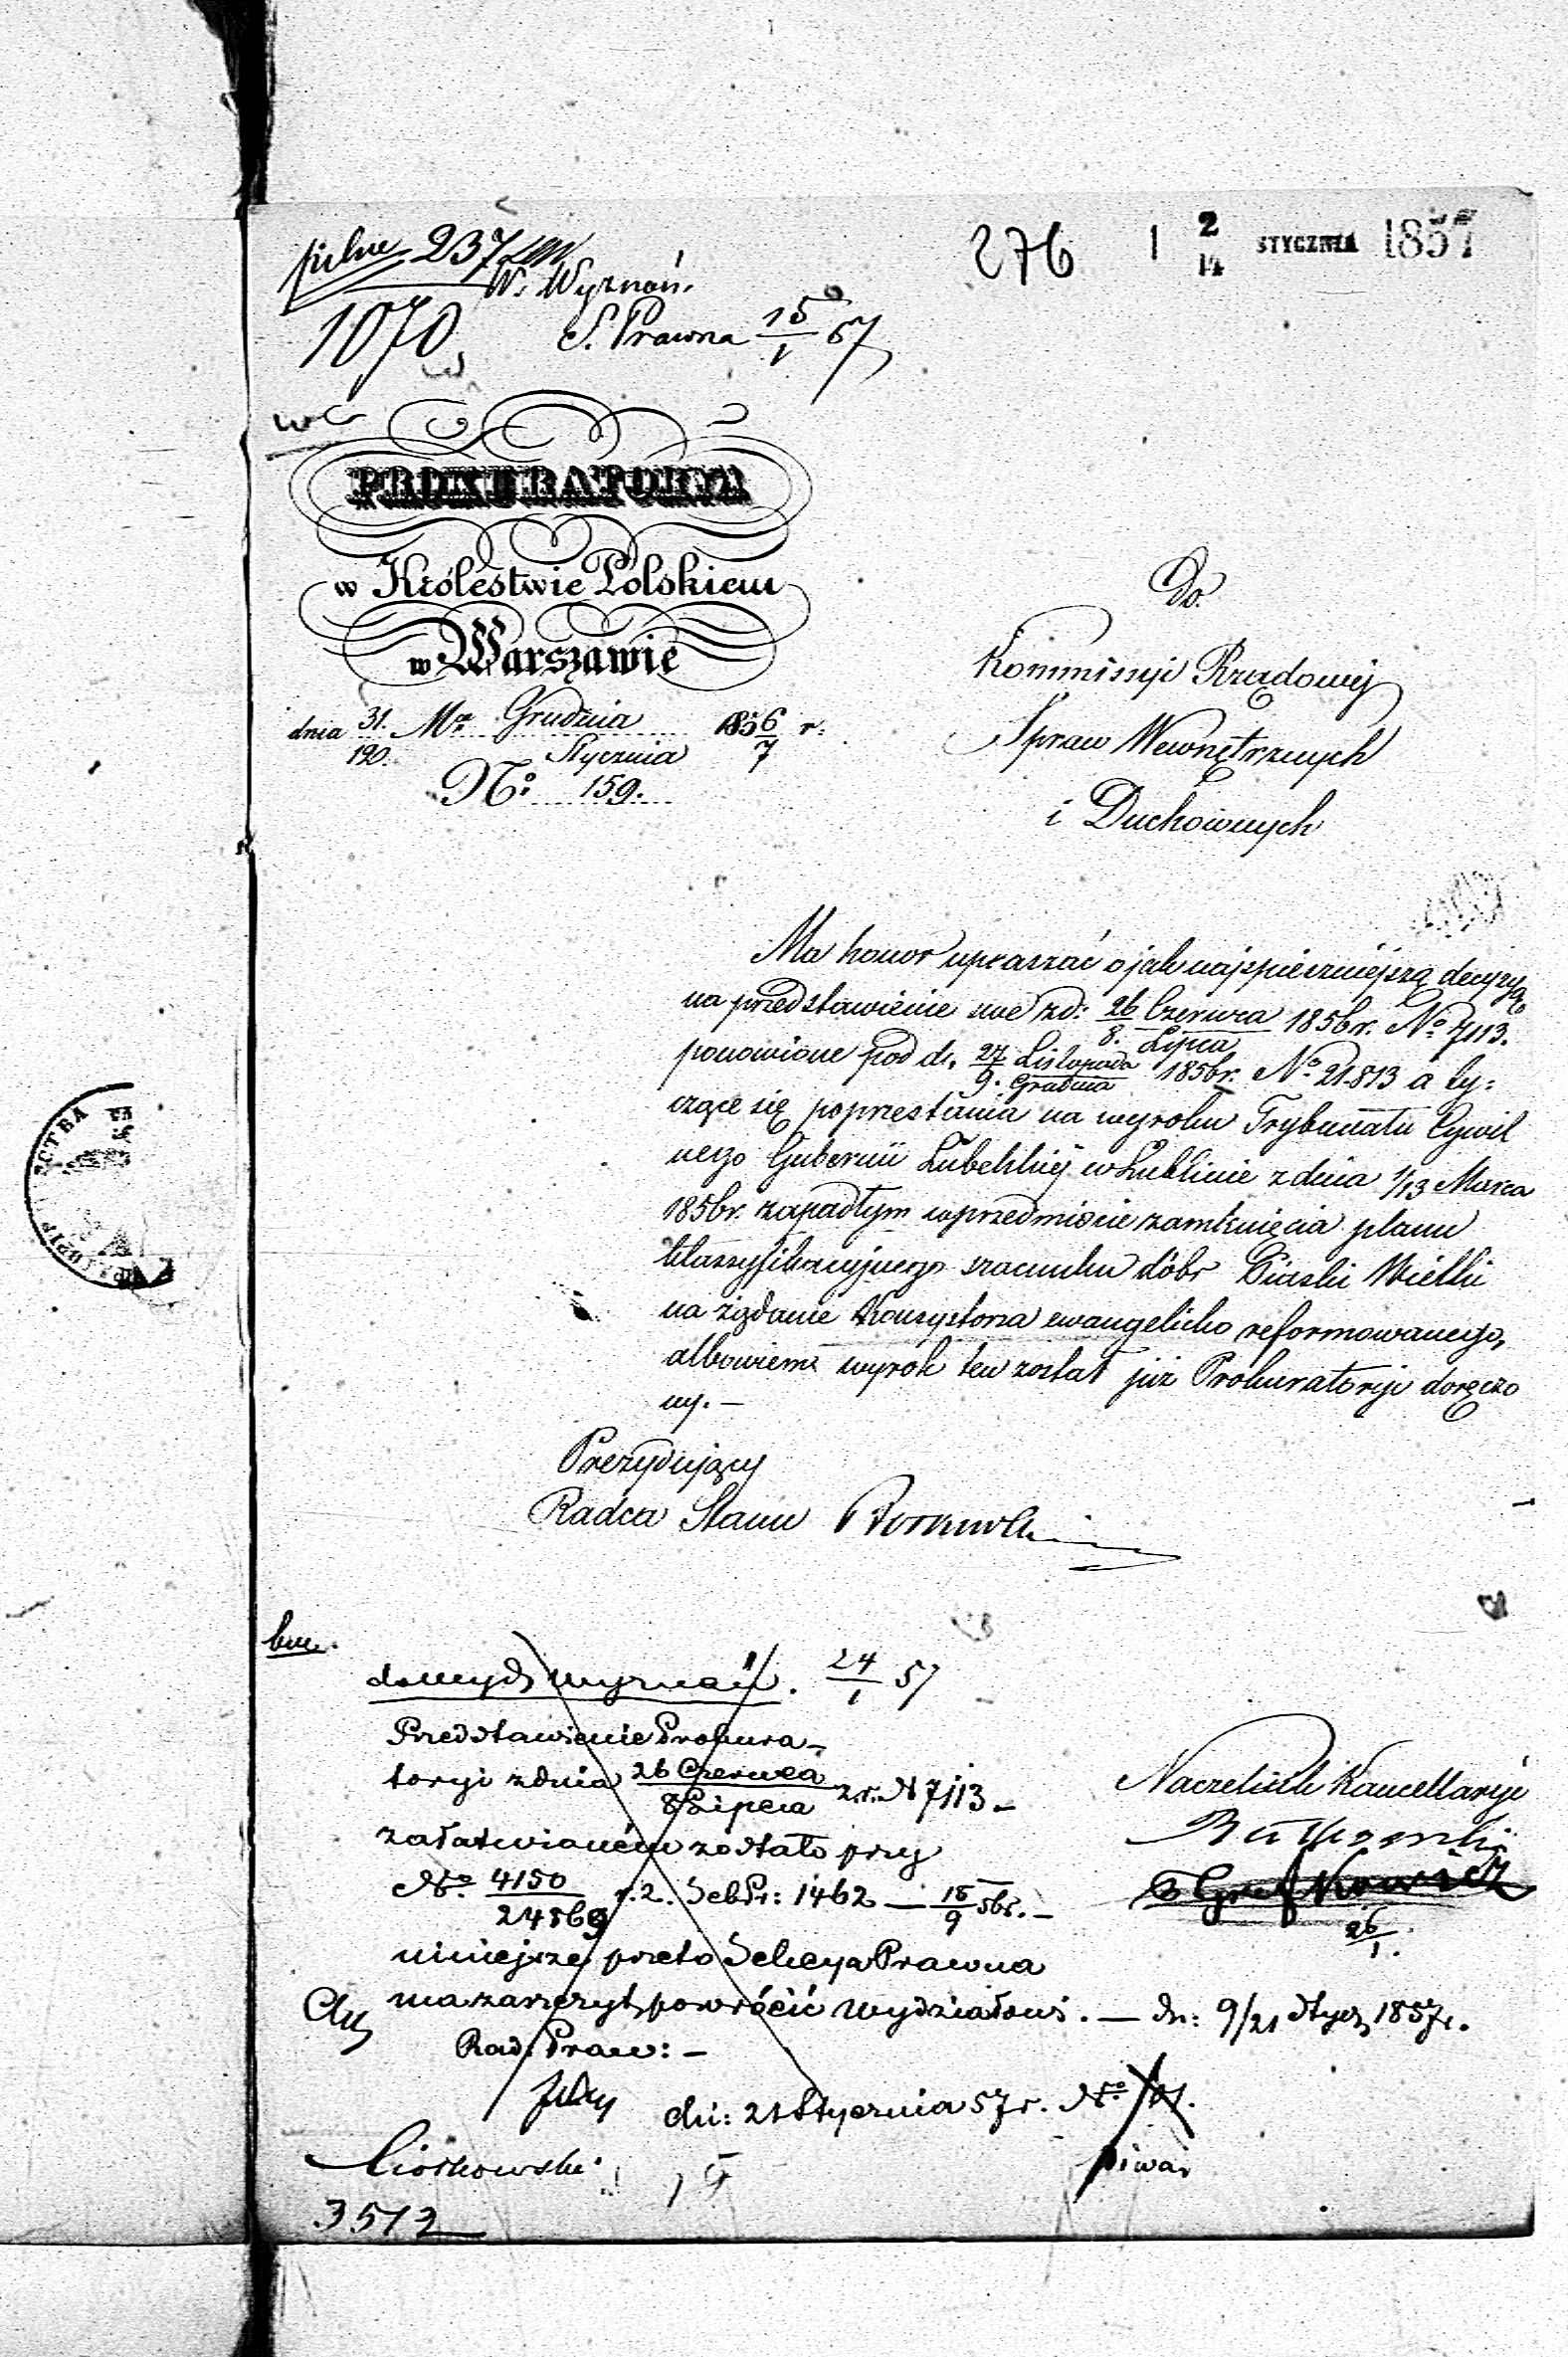 pilne 237
W. Wyznań.
1070
S. Prawna 15/1 57
276
2/14 STYCZNIA 1857
PROKURATORYA
w Królestwie Polskiem
w Warszawie
dnia 31. Mca Grudnia 1856 r:
12. Stycznia 7
No: 159.
Do
Kommissyi Rządowej
Spraw Wewnętrznych
i Duchownych
Ma honor upraszać o jak najspieszniejszą decyzyą,
na przedstawienie swe zd: 26 Czerwca/8. Lipca 1856r. No 7113.
ponowione pod d. 27 Listopada/9. Grudnia 1856r. No 21.813 a ty=
czące się poprzestania na wyroku Trybunału Cywil
nego Gubernii Lubelskiej w Lublinie z dnia 1/13 Marca
1856r. zapadłym w przedmiocie zamknięcia planu
klassyfikacyjnego szacunku dóbr Piaski Wielkie
na żądanie Konsystorza ewangelicko reformowanego,
albowiem wyrok ten został już Prokuratoryi doręczo
ny. –
Prezydujący
Radca Stanu
do wydz wyznań. 24/1 57
Przedstawienie Prokura-
toryi z dnia 26 Czerwca/8 Lipca z.r. N 7113 –
załatwioném zostało przy
No. 4150/24869 r.z. Sek Pr: 1462 — 15/9 56r. –
niniejsze przeto Sekcya Prawna
ma zaszczyt powrócić Wydziałowi. — dn: 9/21 Stycz 1857r.
Rad. Praw: –
Naczelnik Kancellaryi
26/1.
dn: 21 Stycznia 57 r. No
Ciołkowski
3512